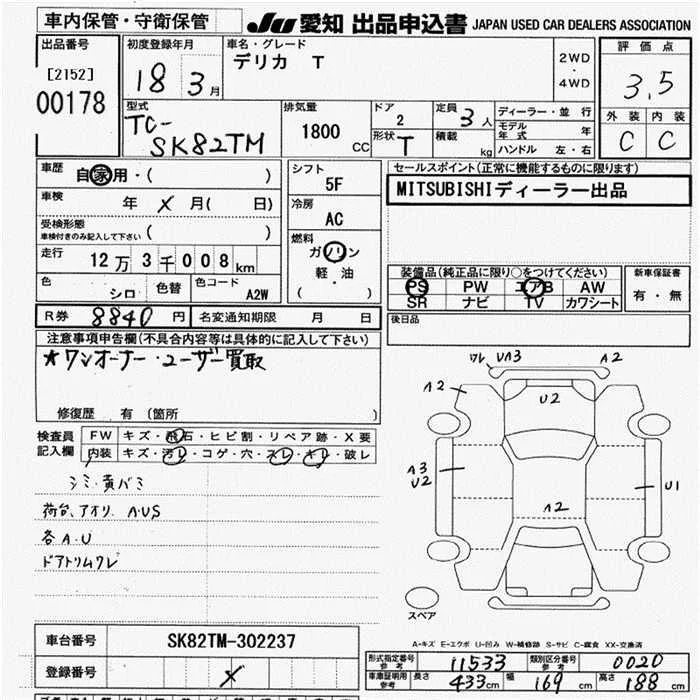 車内保管・守衛保管
JU 愛知 出品申込書 JAPAN USED CAR DEALERS ASSOCIATION
出品番号
[2152]
00178
初度登録年月
18 3月
車名・グレード
デリカ T
2WD
・
4WD
評価点
3.5
型式
TC-
SK82TM
排気量
1800
CC
ドア
2
形状 T
定員
3人
積載
kg
ディーラー・並行
モデル年式 年
ハンドル 左・右
外装 内装
C C
車歴
自家用・( )
車検
年 × 月( 日)
受検形態
車検付きのみ記入して下さい ( )
走行
12万3千008km
色
シロ
色替
色コード
A2W
シフト
5F
冷房
AC
燃料
ガソリン
軽・油
( )
セールスポイント(正常に機能するものに限ります)
MITSUBISHIディーラー出品
装備品(純正品に限り○をつけてください)
PS PW エアB AW
SR ナビ TV カワシート
新車保証書
有・無
R券 8840円
名変通知期限 月 日
後日品
注意事項申告欄(不具合内容等は具体的に記入して下さい)
★ワンオーナー・ユーザー買取
修復歴 有 (箇所 )
検査員
記入欄
FW キズ・飛石・ヒビ割・リペア跡・X要
内装 キズ・汚レ・コゲ・穴・スレ・キレ・破レ
シミ・黄バミ
荷台、アオリ A・US
各A・U
ドアトリムワレ
ワレ UA3 A2
A2
U2
A3
U2
U1
A2
スペア
A-キズ E-エクボ U-凹み W-補修跡 S-サビ C-腐食 XX-交換済
車台番号
SK82TM-302237
登録番号
×
形式指定番号
参考
11533
類別区分番号
参考
0020
車庫証明用
参考
長さ 433cm 幅 169cm 高さ 188cm